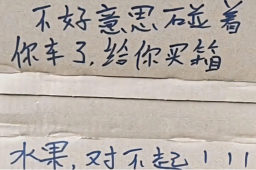 不好意思碰着
你车了,给你买箱
水果,对不起!!!